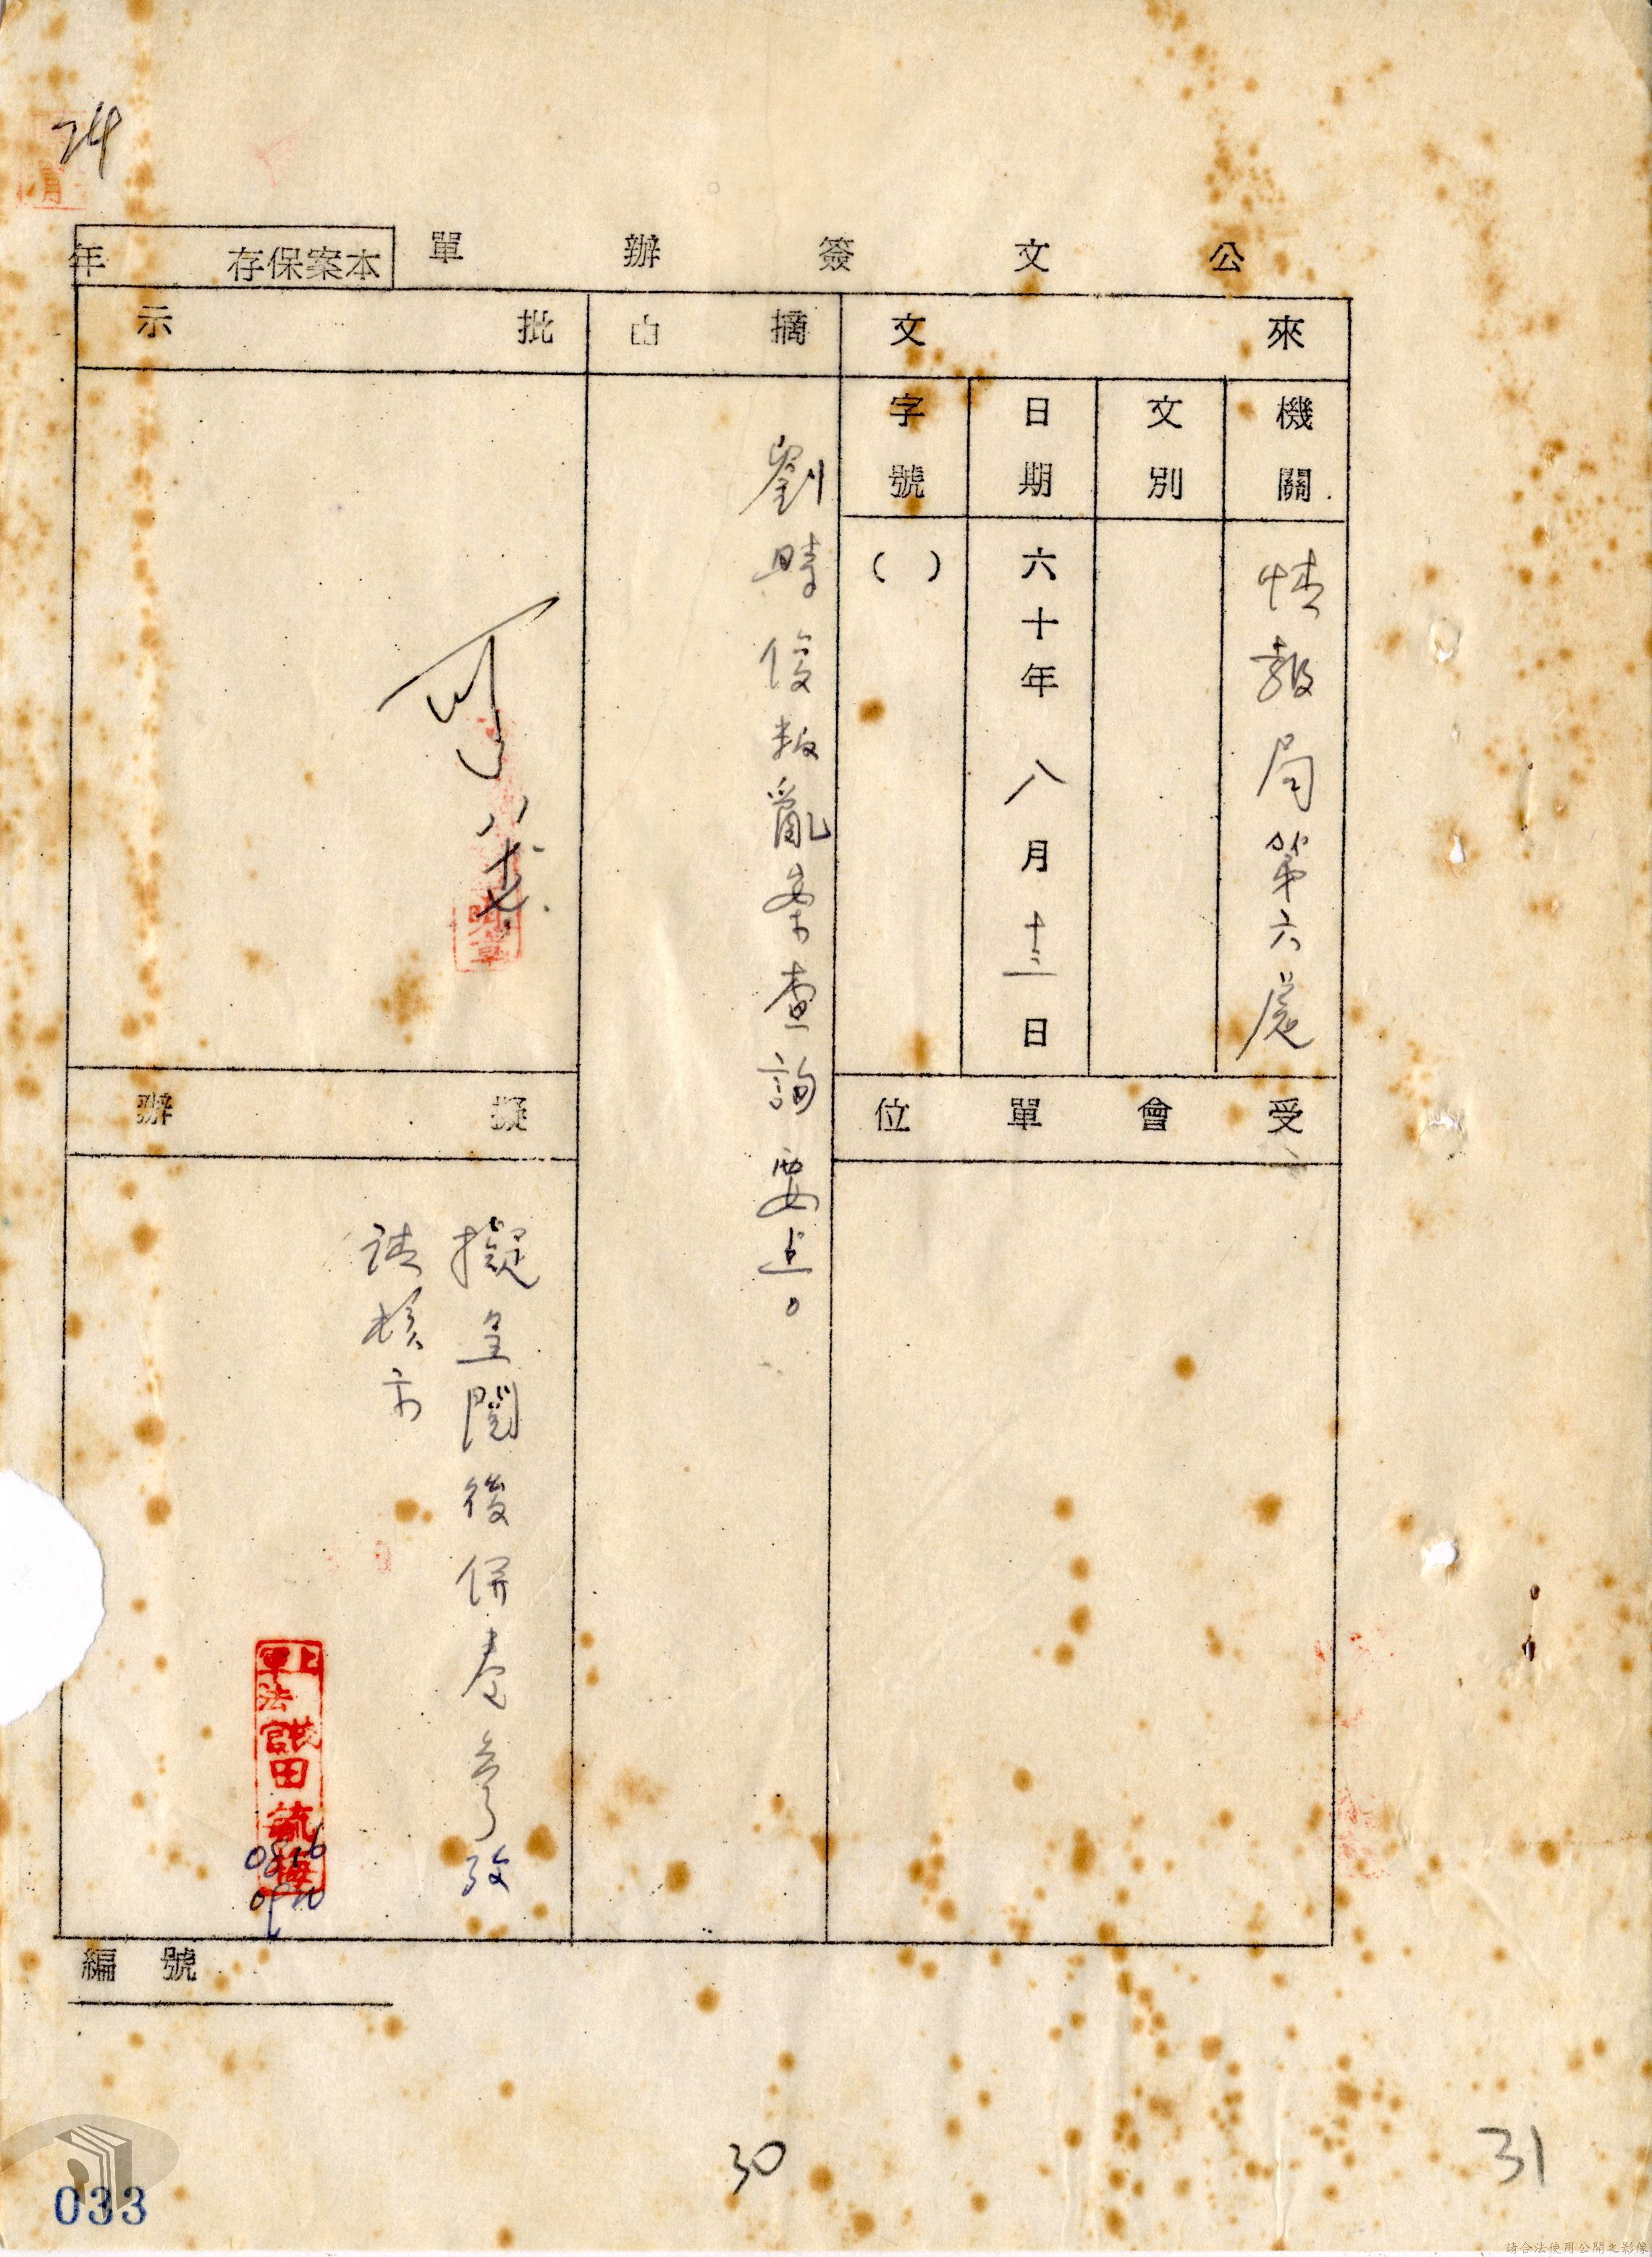 24
公文簽辦單
本案保存 年
來文
機關
情報局第六處
文別
日期
六十年八月十三日
字號
( )
受會單位
摘由
劉時俊叛亂案查詢要點。
批示
可
擬辦
擬呈閱後併卷參攷
請核示
上
軍法
官
田
0816
編號
30
31
033
請合法使用公開之影像